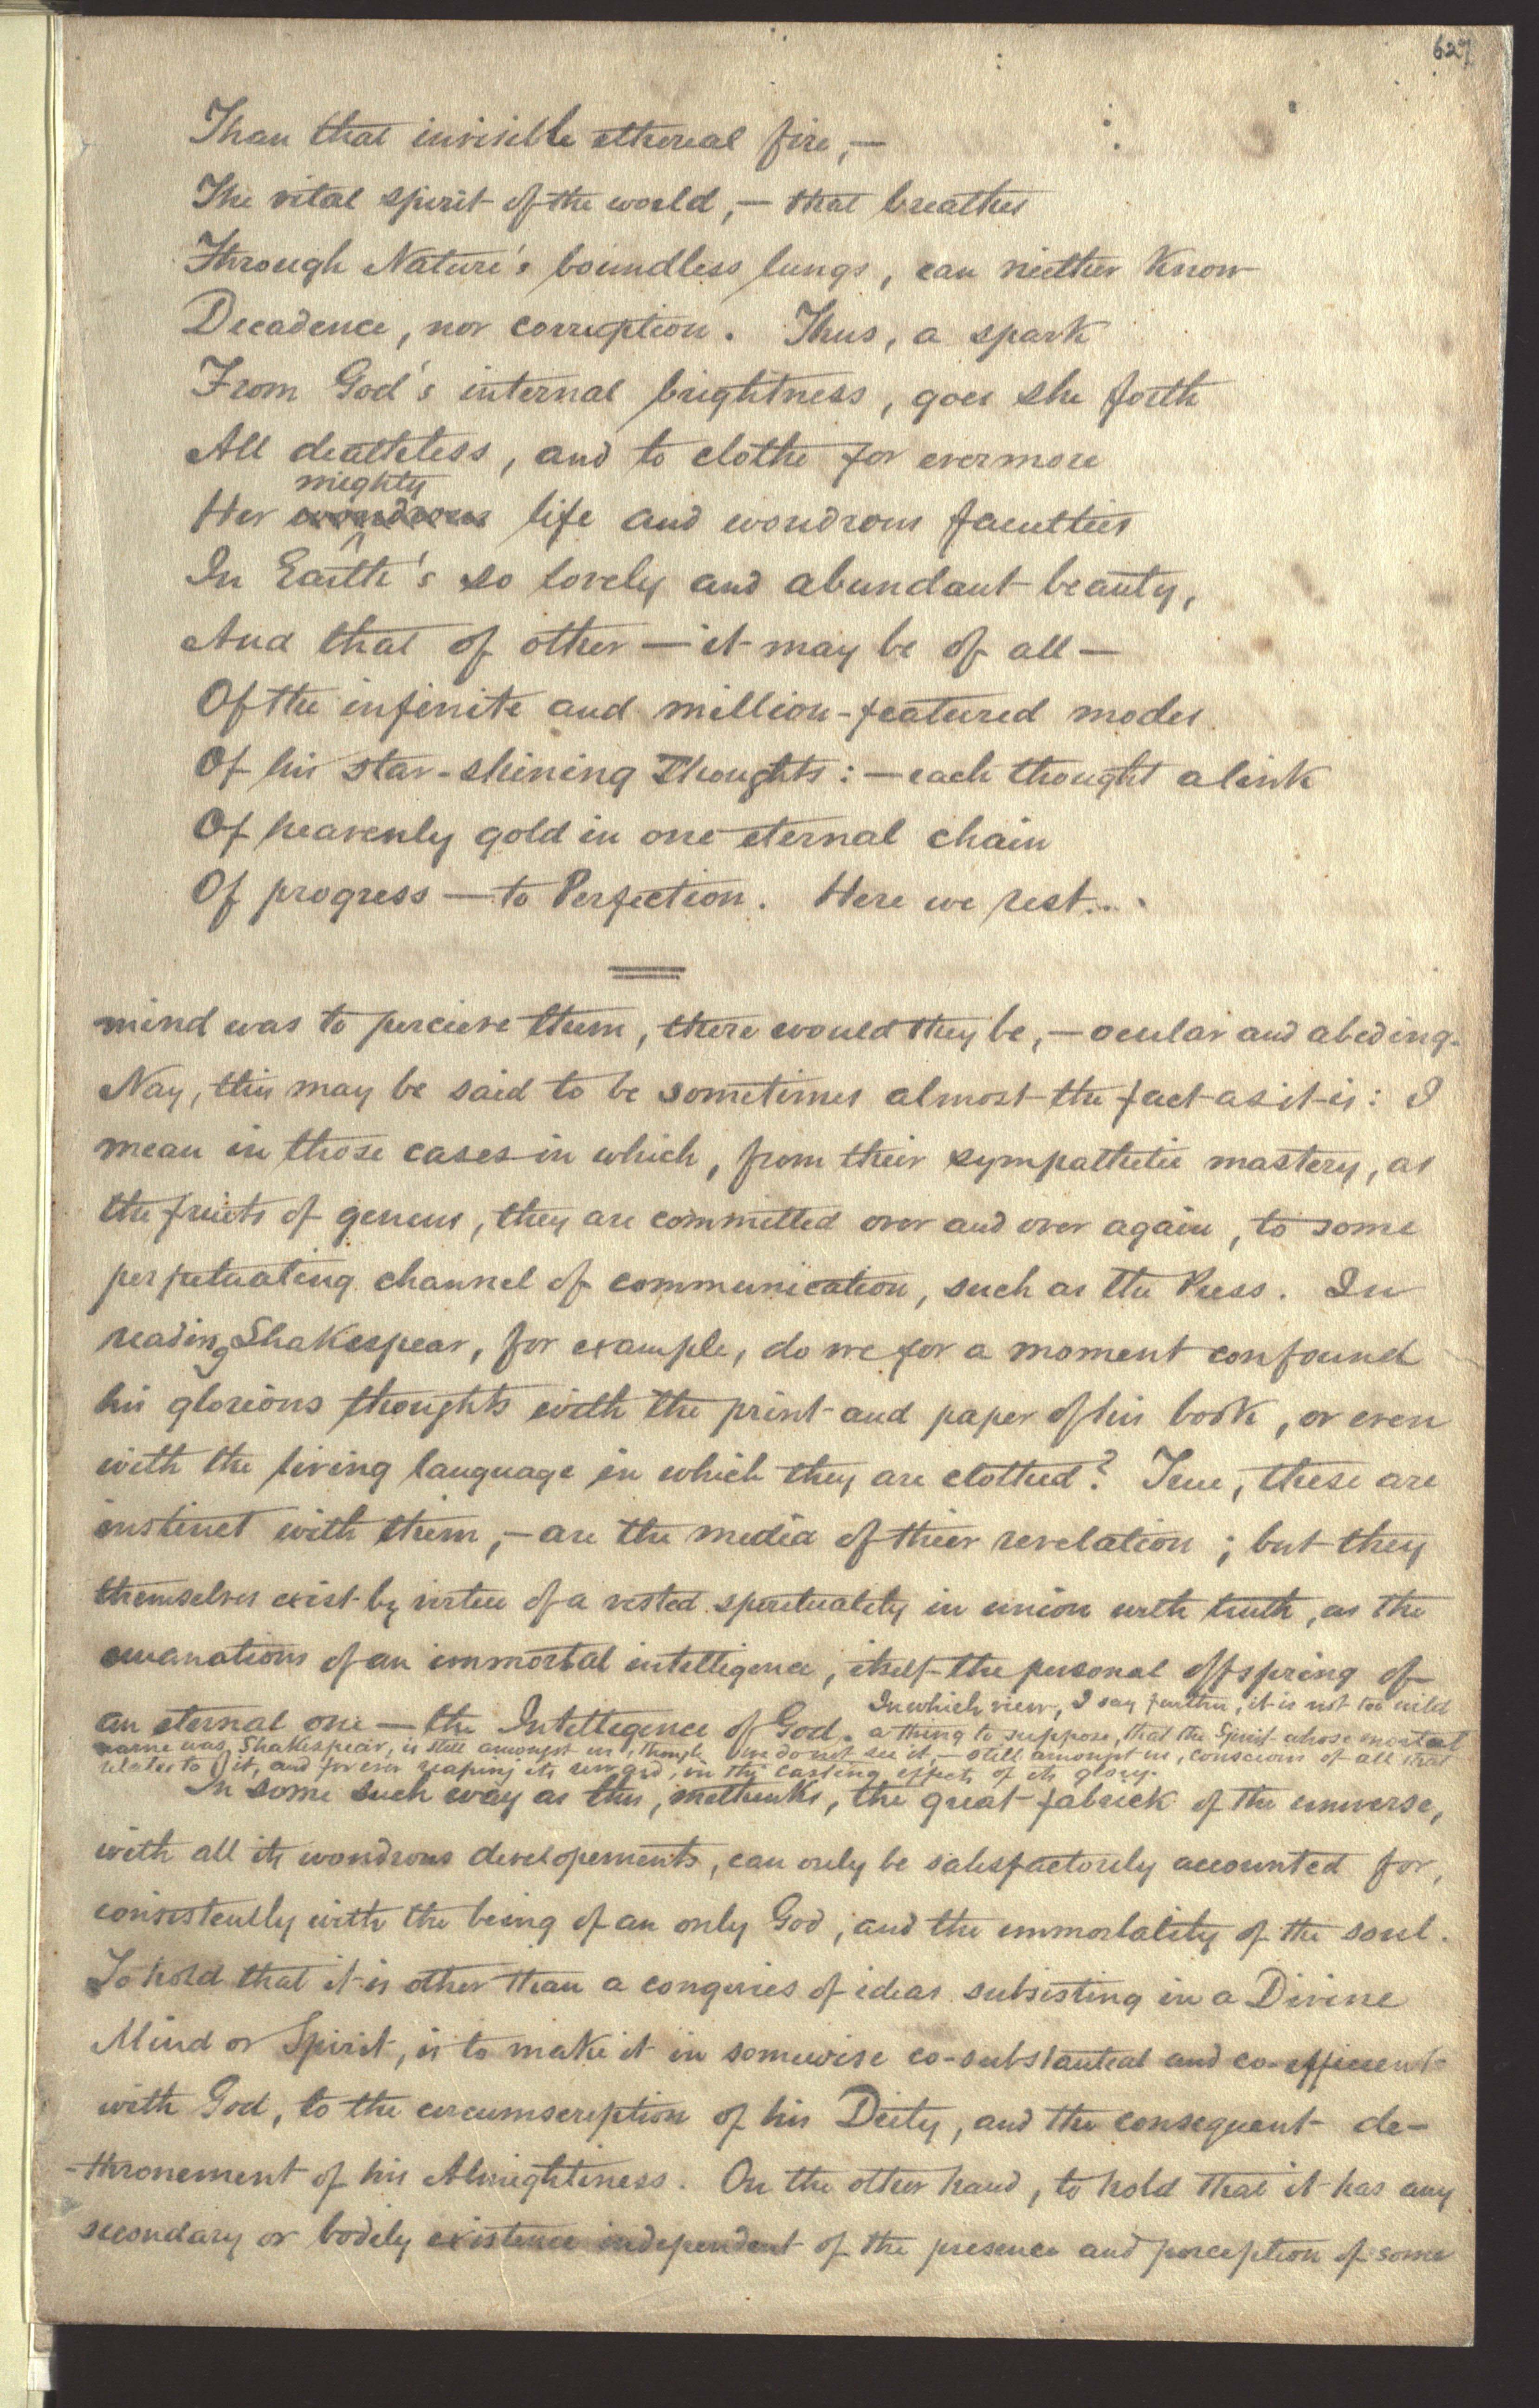 627
Than that invisible ethereal fire,—
The vital spirit of the world,— that breathes
Through Nature's boundless lungs, can neither know
Decadence, nor corruption. Thus, a spark
From God's internal brightness, goes she forth
All deathless, and to clothe for evermore
mighty
Her wondrous life and wondrous faculties
In Earth's so lovely and abundant beauty,
And that of other — it may be of all —
Of the infinite and million-featured modes
Of his star-shining Thoughts: — each thought a link
Of heavenly gold in one eternal chain
Of progress — to Perfection. Here we rest....
mind was to percieve them, there would they be, — ocular and abiding.
Nay, this may be said to be sometimes almost the fact as it is: I
mean in those cases in which, from their sympathetic mastery, as
the fruits of genius, they are committed over and over again, to some
perpetuating channel of communication, such as the Press. In
reading Shakespear, for example, do we for a moment confound
his glorious thoughts with the print and paper of his book, or even
with the living language in which they are clothed? True, these are
instinct with them, — are the media of their revelation; but they
themselves exist by virtue of a vested spirituality in union with truth, as the
emanations of an immortal intelligence, itself the personal offspring of
an eternal one — the Intelligence of God. In which view, I say further, it is not too wild
a thing to suppose, that the Spirit whose mortal
name was Shakespear, is still amongst us, though we do not see it, — still amongst us, conscious of all that
relates to it, and for ever reaping its reward, in the lasting effects of its glory.
In some such way as this, methinks, the great fabrick of the universe,
with all its wondrous developements, can only be satisfactorily accounted for,
consistently with the being of an only God, and the immortality of the soul.
To hold that it is other than a congeries of ideas subsisting in a Divine
Mind or Spirit, is to make it in somewise co-substantial and co-efficient
with God, to the circumscription of his Deity, and the consequent de-
-thronement of his Almightiness. On the other hand, to hold that it has any
secondary or bodily existence independent of the presence and perception of some